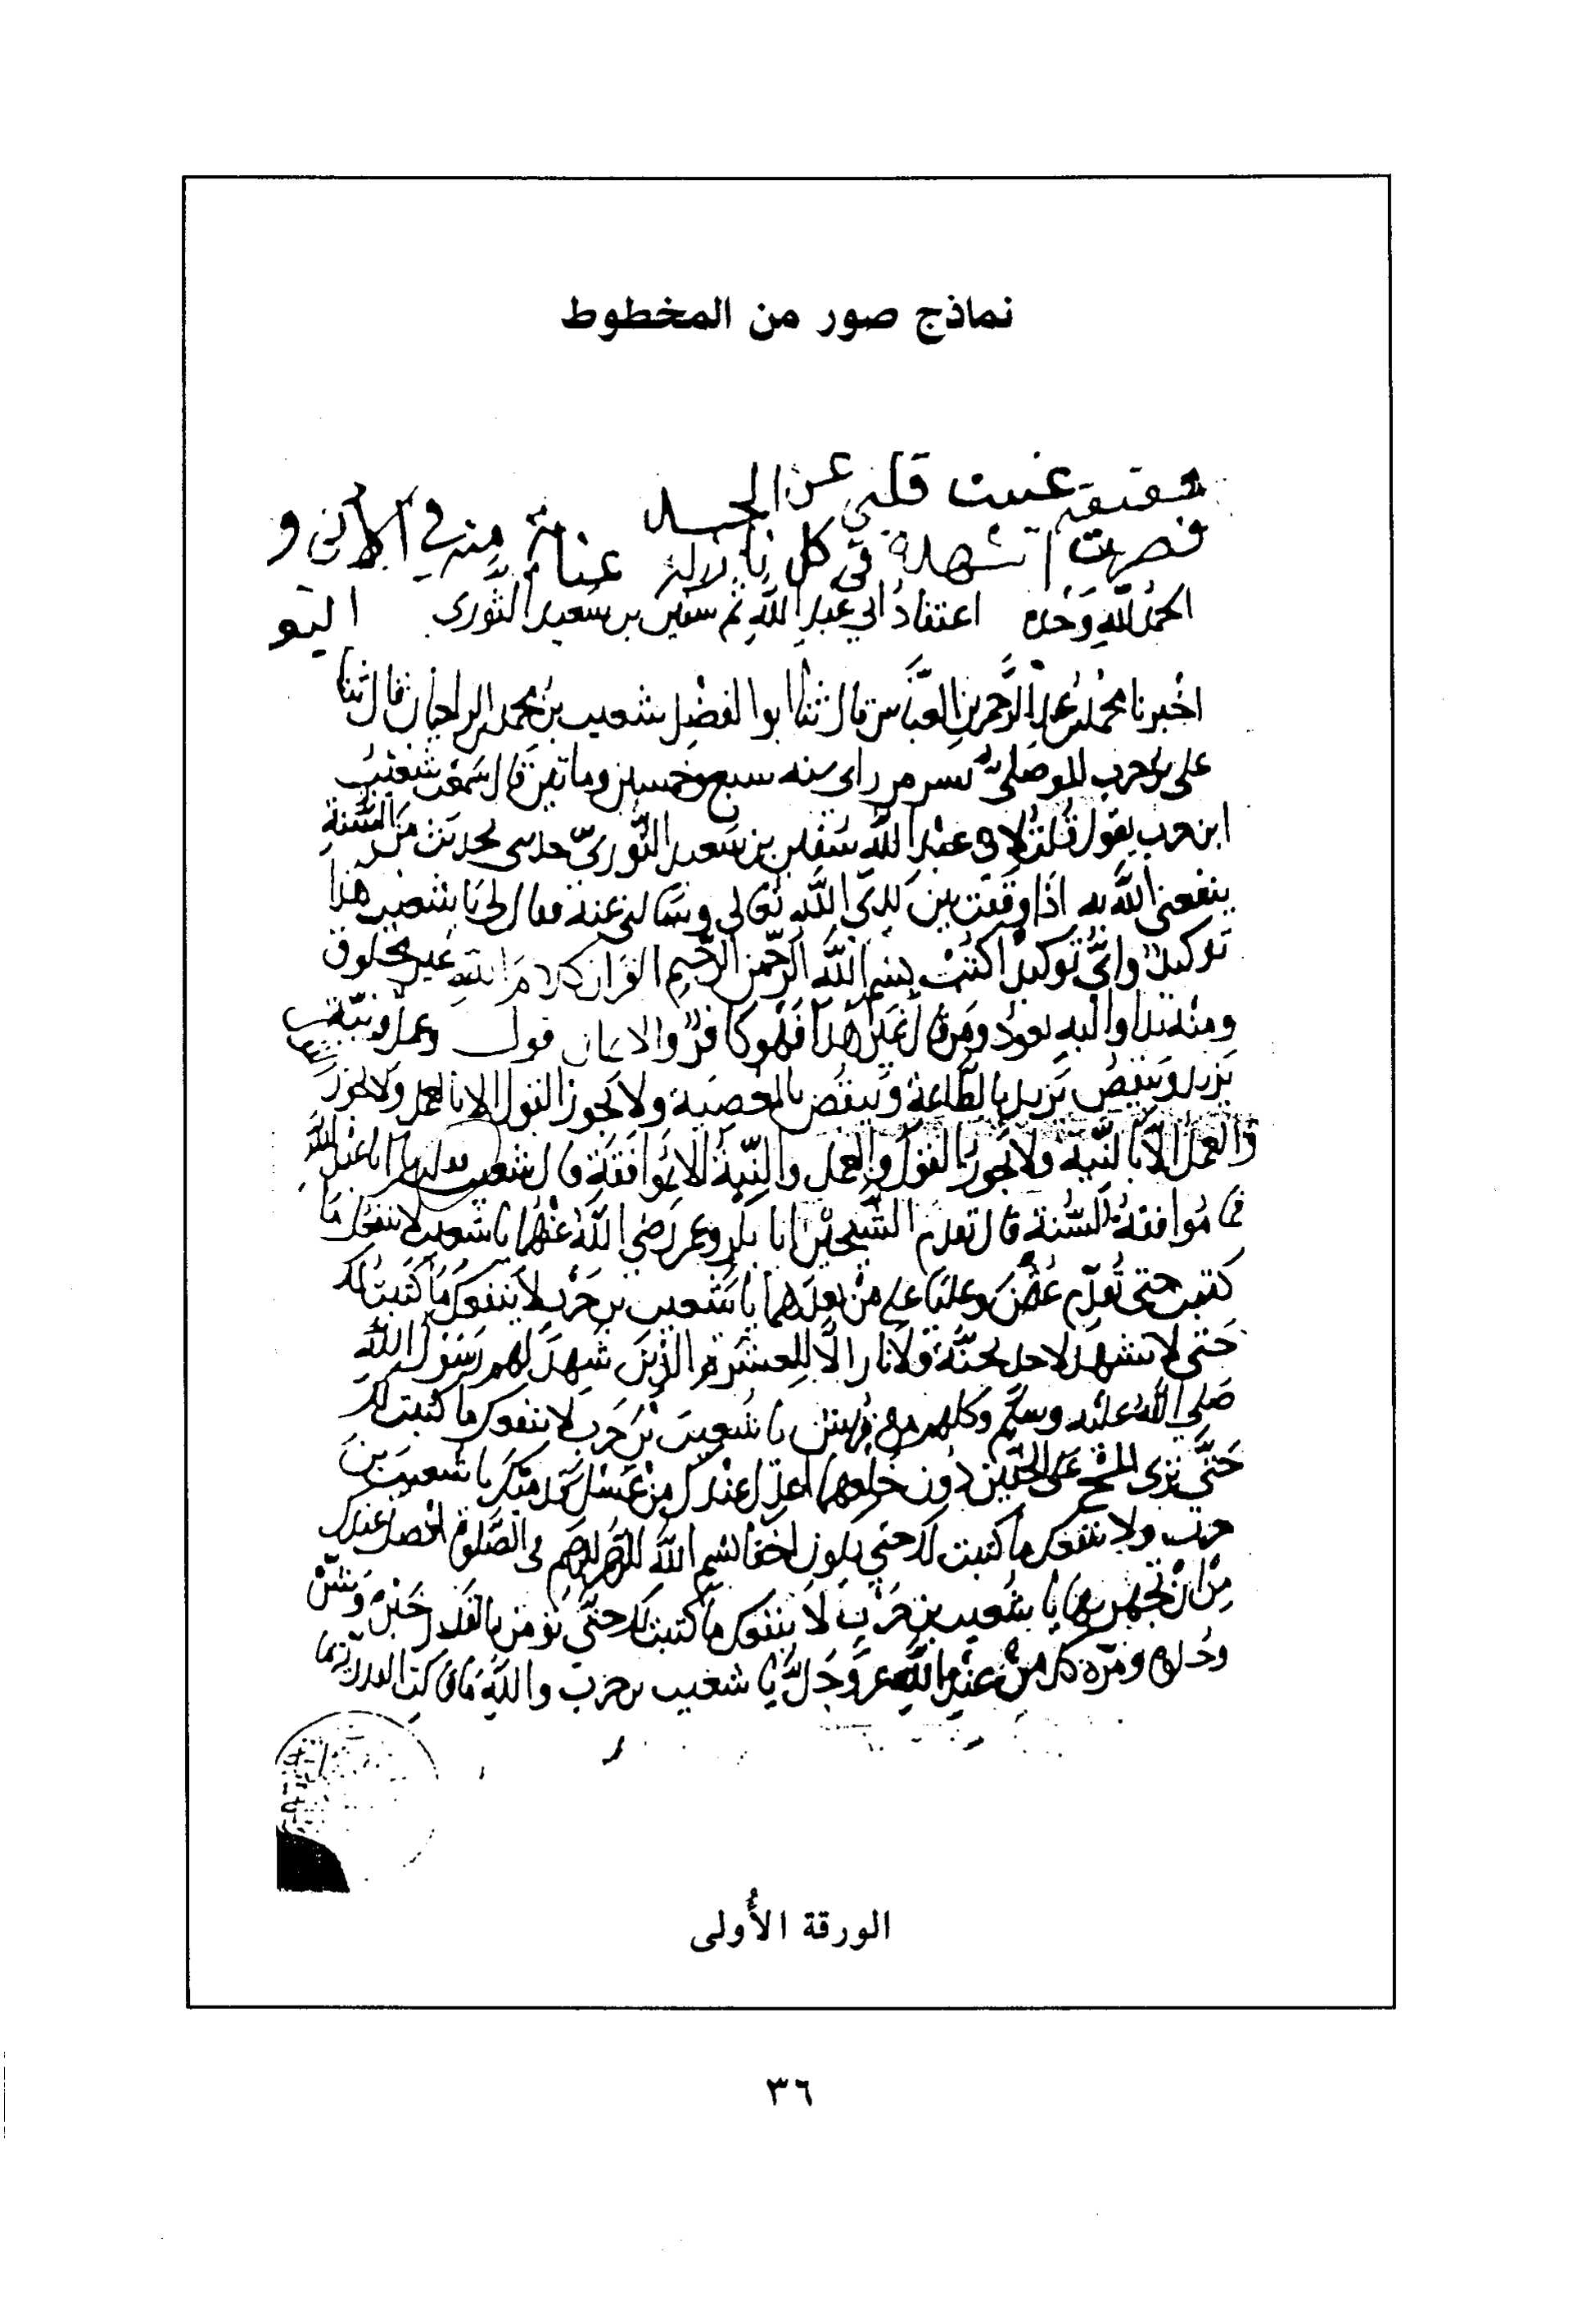 نماذج صور من المخطوط
غيبت قلبي عن
فصرت تشهده في كل
الحمد لله وحده اعتقاد ابي عبد الله سفين بن سعيد الثوري
اخبرنا محمد بن عبد الرحمن بن العباس قال ثنا ابو الفضل شعيب بن محمد بن الراجيان قال ثنا
على بن حرب الموصلي بسر من راى سنه سبع وخمسين وماتين قال سمعت شعيب
ابن حرب يقول قلت لابي عبد الله سفين بن سعيد الثوري حدثني بحديث من السنة
ينفعني الله به اذا وقفت بين يدي الله تعالى وسالني عنه فقال لي يا شعيب هذا
توكيد واي توكيد اكتب بسم الله الرحمن الرحيم القران كلام الله غير مخلوق
ومنه بدا واليه يعود ومن قال غير هذا فهو كافر والايمان قول وعمل ونية
يزيد وينقص يزيد بالطاعة وينقص بالمعصية ولا يجوز القول الا بالعمل ولا يجوز
والعمل الا بالنية ولا يجوز القول والعمل والنية الا بموافقة قال شعيب يا ابا عبد الله
فما موافقة السنة قال تقدم الشيخين ابا بكر وعمر رضي الله عنهما يا شعيب لا ينفعك ما
كتبت حتى تقدم عثمن وعليا على من بعدهما يا شعيب بن حرب لا ينفعك ما كتبت لك
حتى لا تشهد لاحد بجنة ولا نار الا للعشرة الذين شهد لهم رسول الله
صلى الله عليه وسلم وكلهم من قريش يا شعيب بن حرب لا ينفعك ما كتبت لك
حتى ترى المسح على الخفين دون خلعهما اعدل عندك من غسل قدميك يا شعيب بن
حرب ولا ينفعك ما كتبت لك حتى يكون اخفا بسم الله الرحمن الرحيم في الصلوة افضل عندك
من ان تجهر بها يا شعيب بن حرب لا ينفعك ما كتبت لك حتى تؤمن بالقدر خيره وشره
وحلوه ومره كل من عند الله عز وجل يا شعيب بن حرب والله ما قالت القدرية ما
الورقة الأولى
٣٦